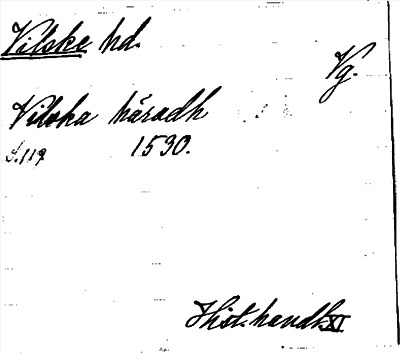 Vilske hd.
Vg.
Vilska häradh
S. 119 1590.
Hist. handl. XI.